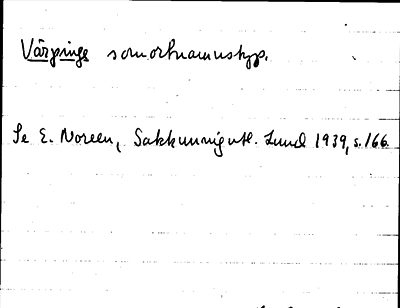 Värpinge som ortnamnstyp.
Se E. Noreen, Sakkunnigutl. Lund 1939, s. 166.